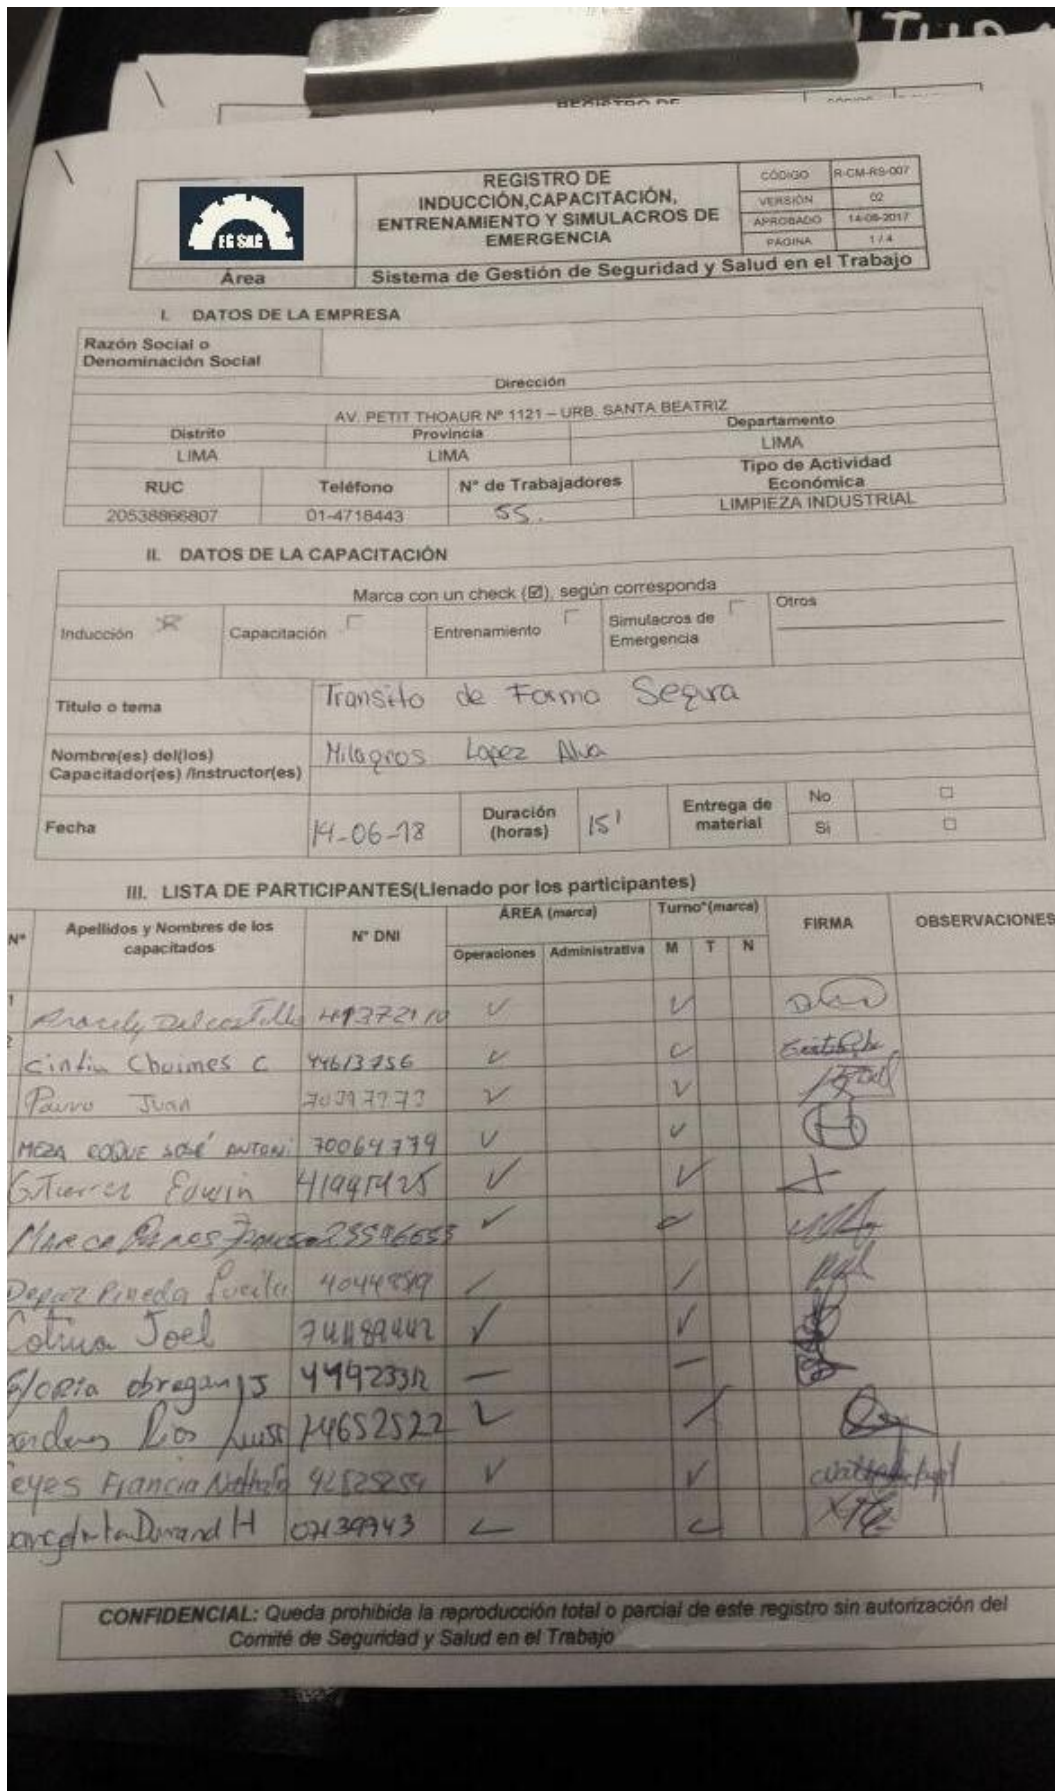 REGISTRO DE
EG SAC
REGISTRO DE
INDUCCIÓN,CAPACITACIÓN,
ENTRENAMIENTO Y SIMULACROS DE
EMERGENCIA
CÓDIGO R-CM-RS-007
VERSIÓN 02
APROBADO 14-08-2017
PÁGINA 1 / 4
Área Sistema de Gestión de Seguridad y Salud en el Trabajo
I. DATOS DE LA EMPRESA
Razón Social o
Denominación Social
Dirección
AV. PETIT THOAUR Nº 1121 – URB. SANTA BEATRIZ
Distrito Provincia Departamento
LIMA LIMA LIMA
RUC Teléfono N° de Trabajadores Tipo de Actividad
Económica
20538866807 01-4718443 55. LIMPIEZA INDUSTRIAL
II. DATOS DE LA CAPACITACIÓN
Marca con un check (☑), según corresponda
Inducción Capacitación Entrenamiento Simulacros de
Emergencia Otros
Titulo o tema Transito de Forma Segura
Nombre(es) del(los)
Capacitador(es) /Instructor(es) Milagros Lopez Alva
Fecha 14-06-18 Duración
(horas) 15' Entrega de
material No
Si
III. LISTA DE PARTICIPANTES(Llenado por los participantes)
N° Apellidos y Nombres de los
capacitados N° DNI ÁREA (marca) Turno*(marca) FIRMA OBSERVACIONES
Operaciones Administrativa M T N
1
2 Cintia Chaimes C 44613756
Juan
MEZA COQUE JOSÉ ANTONI 70064779
Gutierrez Edwin
MARCA
Depaz Pineda
Cotrina Joel 74489442
Gloria obregon J
Rios
Reyes Francia
Durand H 07139943
CONFIDENCIAL: Queda prohibida la reproducción total o parcial de este registro sin autorización del
Comité de Seguridad y Salud en el Trabajo